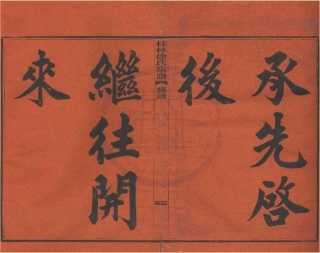 承先啓
後
桂林徐氏宗譜
繼往開
來